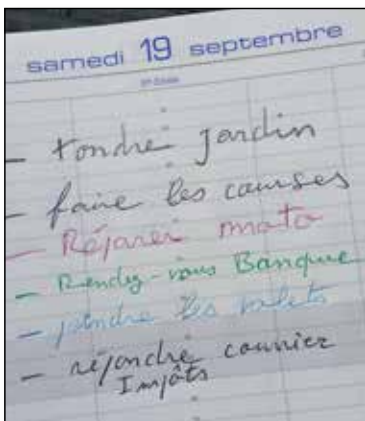 samedi 19 septembre
- tondre jardin
- faire les courses
- Réparer moto
- Rendez-vous Banque
- peindre les volets
- répondre courrier
Impôts